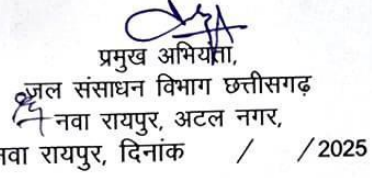 प्रमुख अभियंता,
जल संसाधन विभाग छत्तीसगढ़
नवा रायपुर, अटल नगर,
नवा रायपुर, दिनांक / / 2025